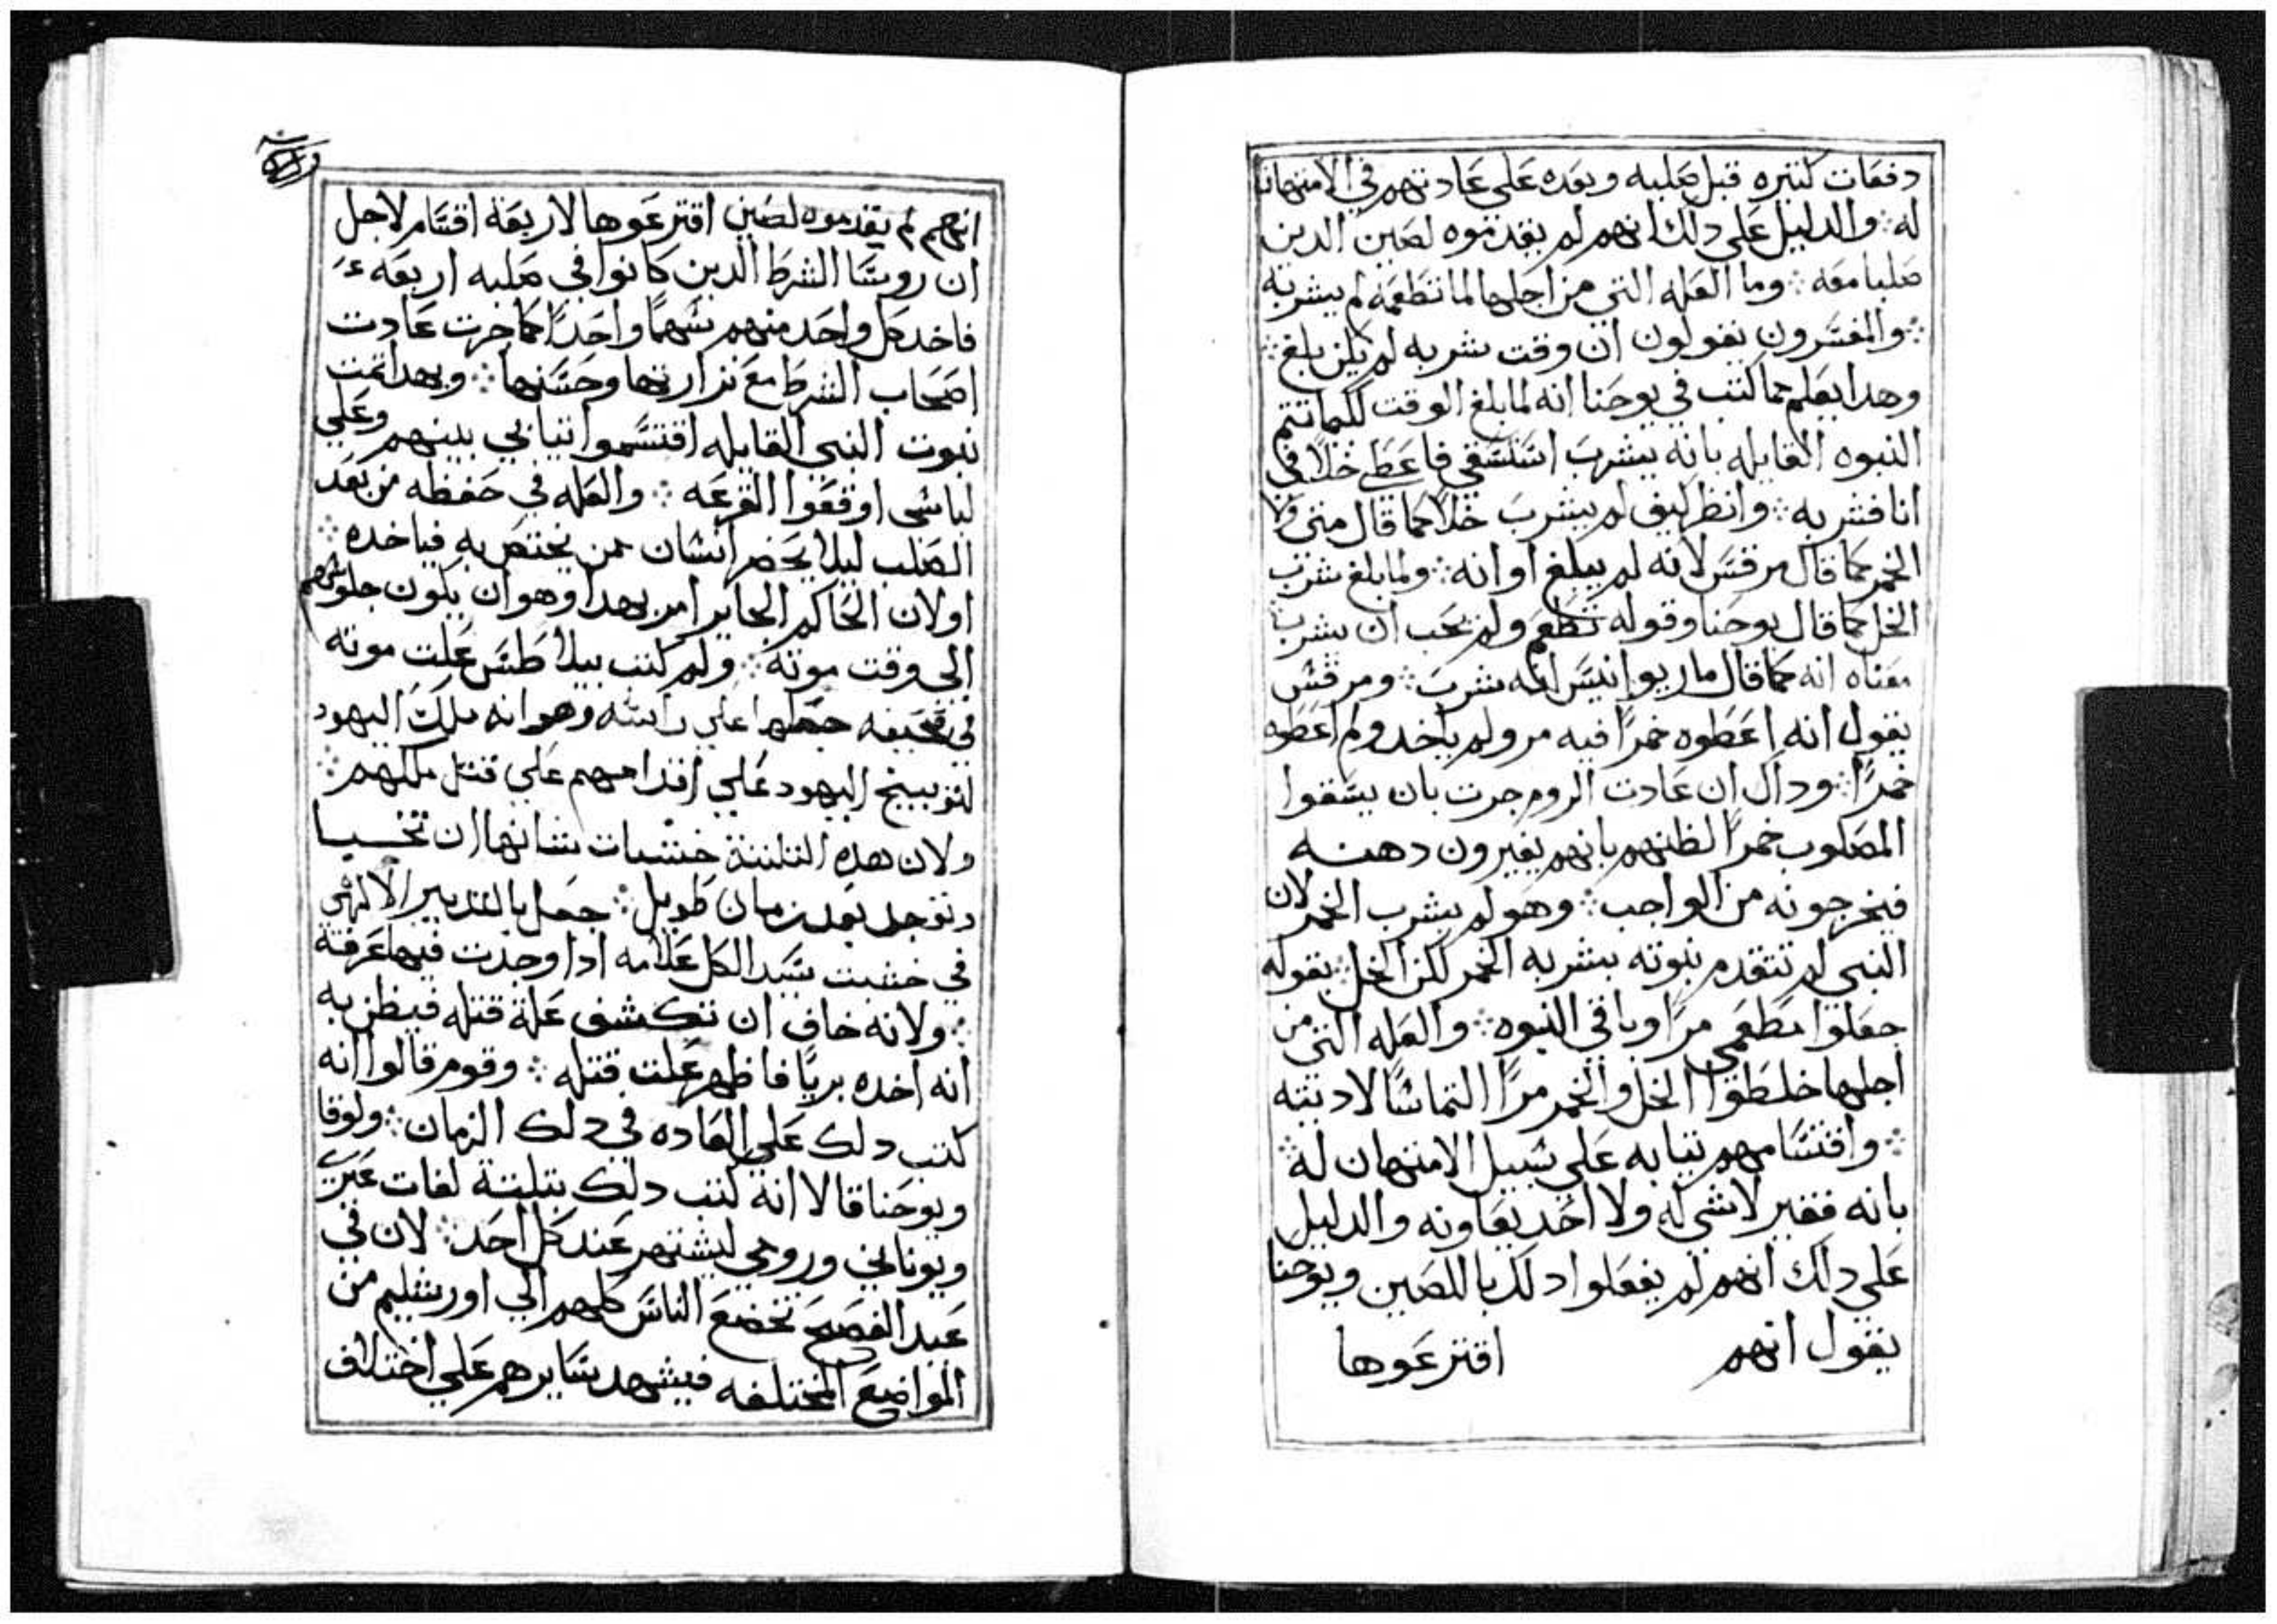 دفعات كتيره قبل صلبه وبعده على عادتهم في الامتهان
له ∴ والدليل على دلك انهم لم يقدموه لصين الدين
صلبا معه ∴ وما العله التي من اجلها لما تطعمه لم يشربه
∴ والمفسرون يقولون ان وقت شربه لم يكن بلغ ∴
وهدا يعلم مما كتب في يوحنا انه لما بلغ الوقت لكما تتم
النبوه القايله بانه يشرب استسقى فاعطي خلا في
انا فشربه ∴ وانظر كيف لم يشرب خلا كما قال متى ولا
الخمر كما قال مرقس لانه لم يبلغ اوانه ∴ ولما بلغ شرب
الخل كما قال يوحنا وقوله تطعم ولم يحب ان يشرب
معناه انه كما قال ماريوانيس انه شرب ∴ ومرقس
يقول انه اعطوه خمرا فيه مر ولم ياخد ولم اعطوه
خمرا ∴ وداك ان عادت الروم جرت بان يسقوا
المصلوب خمرا لظنهم بانهم يغيرون دهنه
فيخرجونه من الواجب ∴ وهو لم يشرب الخمر لان
النبي لم تتقدم نبوته بشربه الخمر لكن الخل ∴ بقوله
جعلوا مطعمي مرا وباقي النبوه ∴ والعله التي من
اجلها خلطوا الخل والخمر مرا التماسا لاديته
∴ واقتسامهم تيابه على سبيل الامتهان له ∴
بانه فقير لا شي له ولا احد يعاونه والدليل
على دلك انهم لم يفعلوا دلك باللصين ويوحنا
يقول انهم اقترعوها
انهم لم يقدموه لصين اقترعوها لاربعة اقسام لاجل
ان روسا الشرط الدين كانوا في صلبه اربعه
فاخد كل واحد منهم سهما واحدا كما جرت عادت
اصحاب الشرط مع نزارتها وخستها ∴ وبهدا تمت
نبوت النبي القايله اقتسموا تيابي بينهم وعلي
لباسي اوقعوا القرعه ∴ والعله في حفظه من بعد
الصلب ليلا يحضر انسان ممن يختص به فياخده ∴
اولان الحاكم الجاير امر بهدا وهو ان يكون جلوسهم
الى وقت موته ∴ ولم كتب بيلاطس علت موته
في صحيفه جعلها علي راسه وهو انه ملك اليهود
لتوبيخ اليهود علي اقدامهم علي قتل ملكهم ∴
ولان هده التلتة خشبات شانها ان تخبا
وتوجد بعد زمان طويل ∴ جعل بالتدبير الالهي
في خشبت سيد الكل علامه ادا وجدت فيها عرفته
∴ ولانه خاف ان تكشف علة قتله فيظن به
انه اخده بريا فاظهر علت قتله ∴ وقوم قالوا انه
كتب دلك على العاده في دلك الزمان ∴ ولوقا
ويوحنا قالا انه كتب دلك بتلتة لغات عبري
ويوناني ورومي ليشتهر عند كل احد ∴ لان في
عيد الفصح تخضع الناس كلهم الي اورشليم من
المواضع المختلفه فيشهد سايرهم علي اختلاف